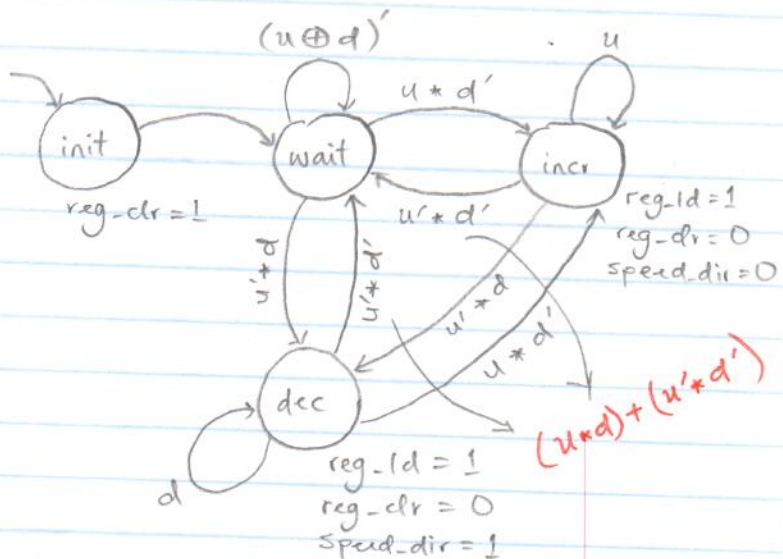 (u ⊕ d)'
u
u * d'
init
wait
incr
reg_clr = 1
u' * d'
reg_ld = 1
reg_clr = 0
speed_dir = 0
u' * d
u' * d'
u' * d
u * d'
(u*d) + (u' * d')
dec
d
reg_ld = 1
reg_clr = 0
speed_dir = 1